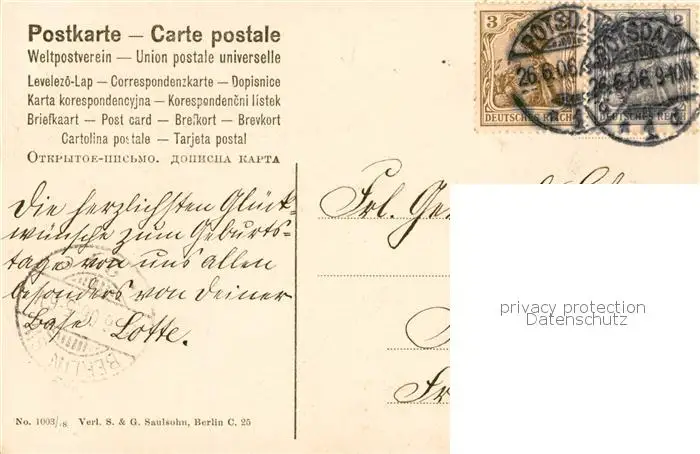 Postkarte — Carte postale
Weltpostverein — Union postale universelle
Levelező-Lap — Correspondenzkarte — Dopisnice
Karta korespondencyjna — Korespondenční lístek
Briefkaart — Post card — Brefkort — Brevkort
Cartolina postale — Tarjeta postal
Открытое-письмо. дописна карта
3
DEUTSCHES REICH
2
DEUTSCHES REICH
POTSDAM
26.6.06
POTSDAM
26.6.06.9-10N
1
d
Die herzlichsten Glück-
wünsche zum Geburts-
tage von uns allen
besonders von Deiner
Base Lotte.
BERLIN
Frl. Ge
Fr
privacy protection
Datenschutz
No. 1003/18 Verl. S. & G. Saulsohn, Berlin C. 25